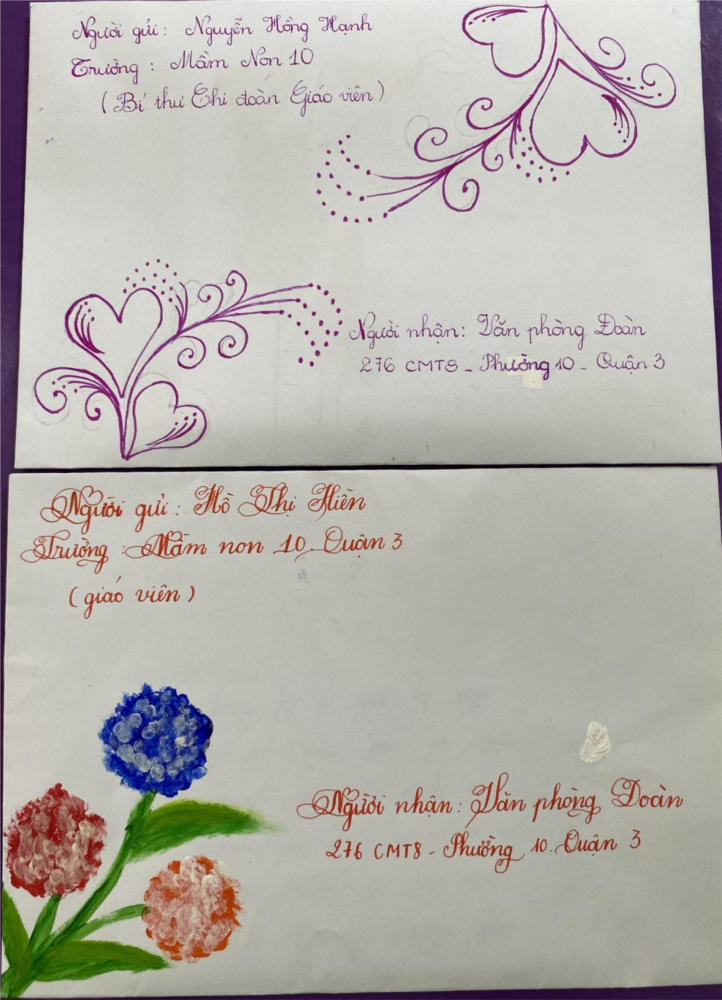 Người gửi: Nguyễn Hồng Hạnh
Trường: Mầm Non 10
(Bí thư Chi đoàn Giáo viên)
Người nhận: Văn phòng Đoàn
276 CMT8 - Phường 10 - Quận 3
Người gửi: Hồ Thị Hiền
Trường: Mầm non 10 Quận 3
(giáo viên)
Người nhận: Văn phòng Đoàn
276 CMT8 - Phường 10. Quận 3